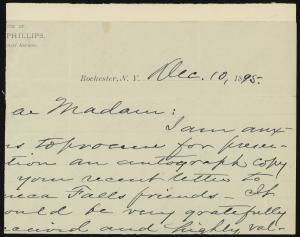 CE OF
PHILLIPS,
Rochester, N. Y. Dec. 10, 1895.
ar Madam:
I am anx-
us to procure for presen-
tion an autograph copy
your recent letter to
neca Falls friends – It
ould be very gratefully
eceived and highly val-